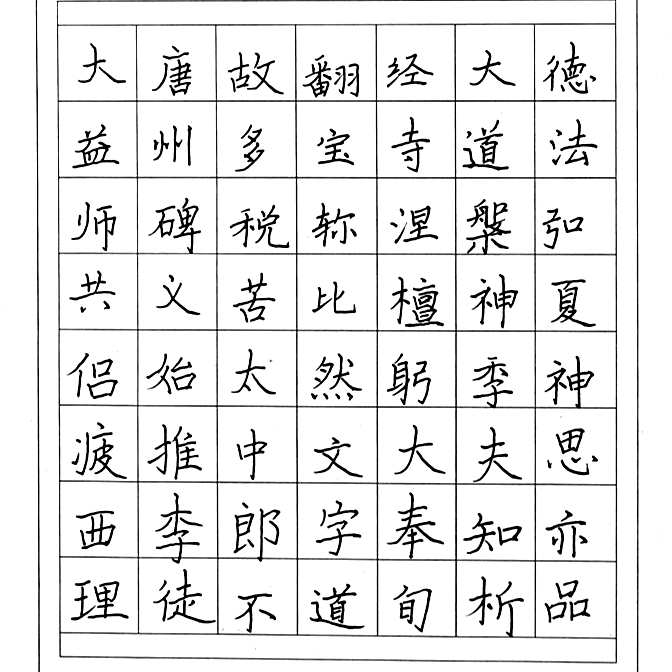 大唐故翻经大德
益州多宝寺道法
师碑税轸涅槃弘
共义苦比檀神夏
侣始太然躬季神
疲推中文大夫思
西李郎字奉知亦
理徒不道旬析品